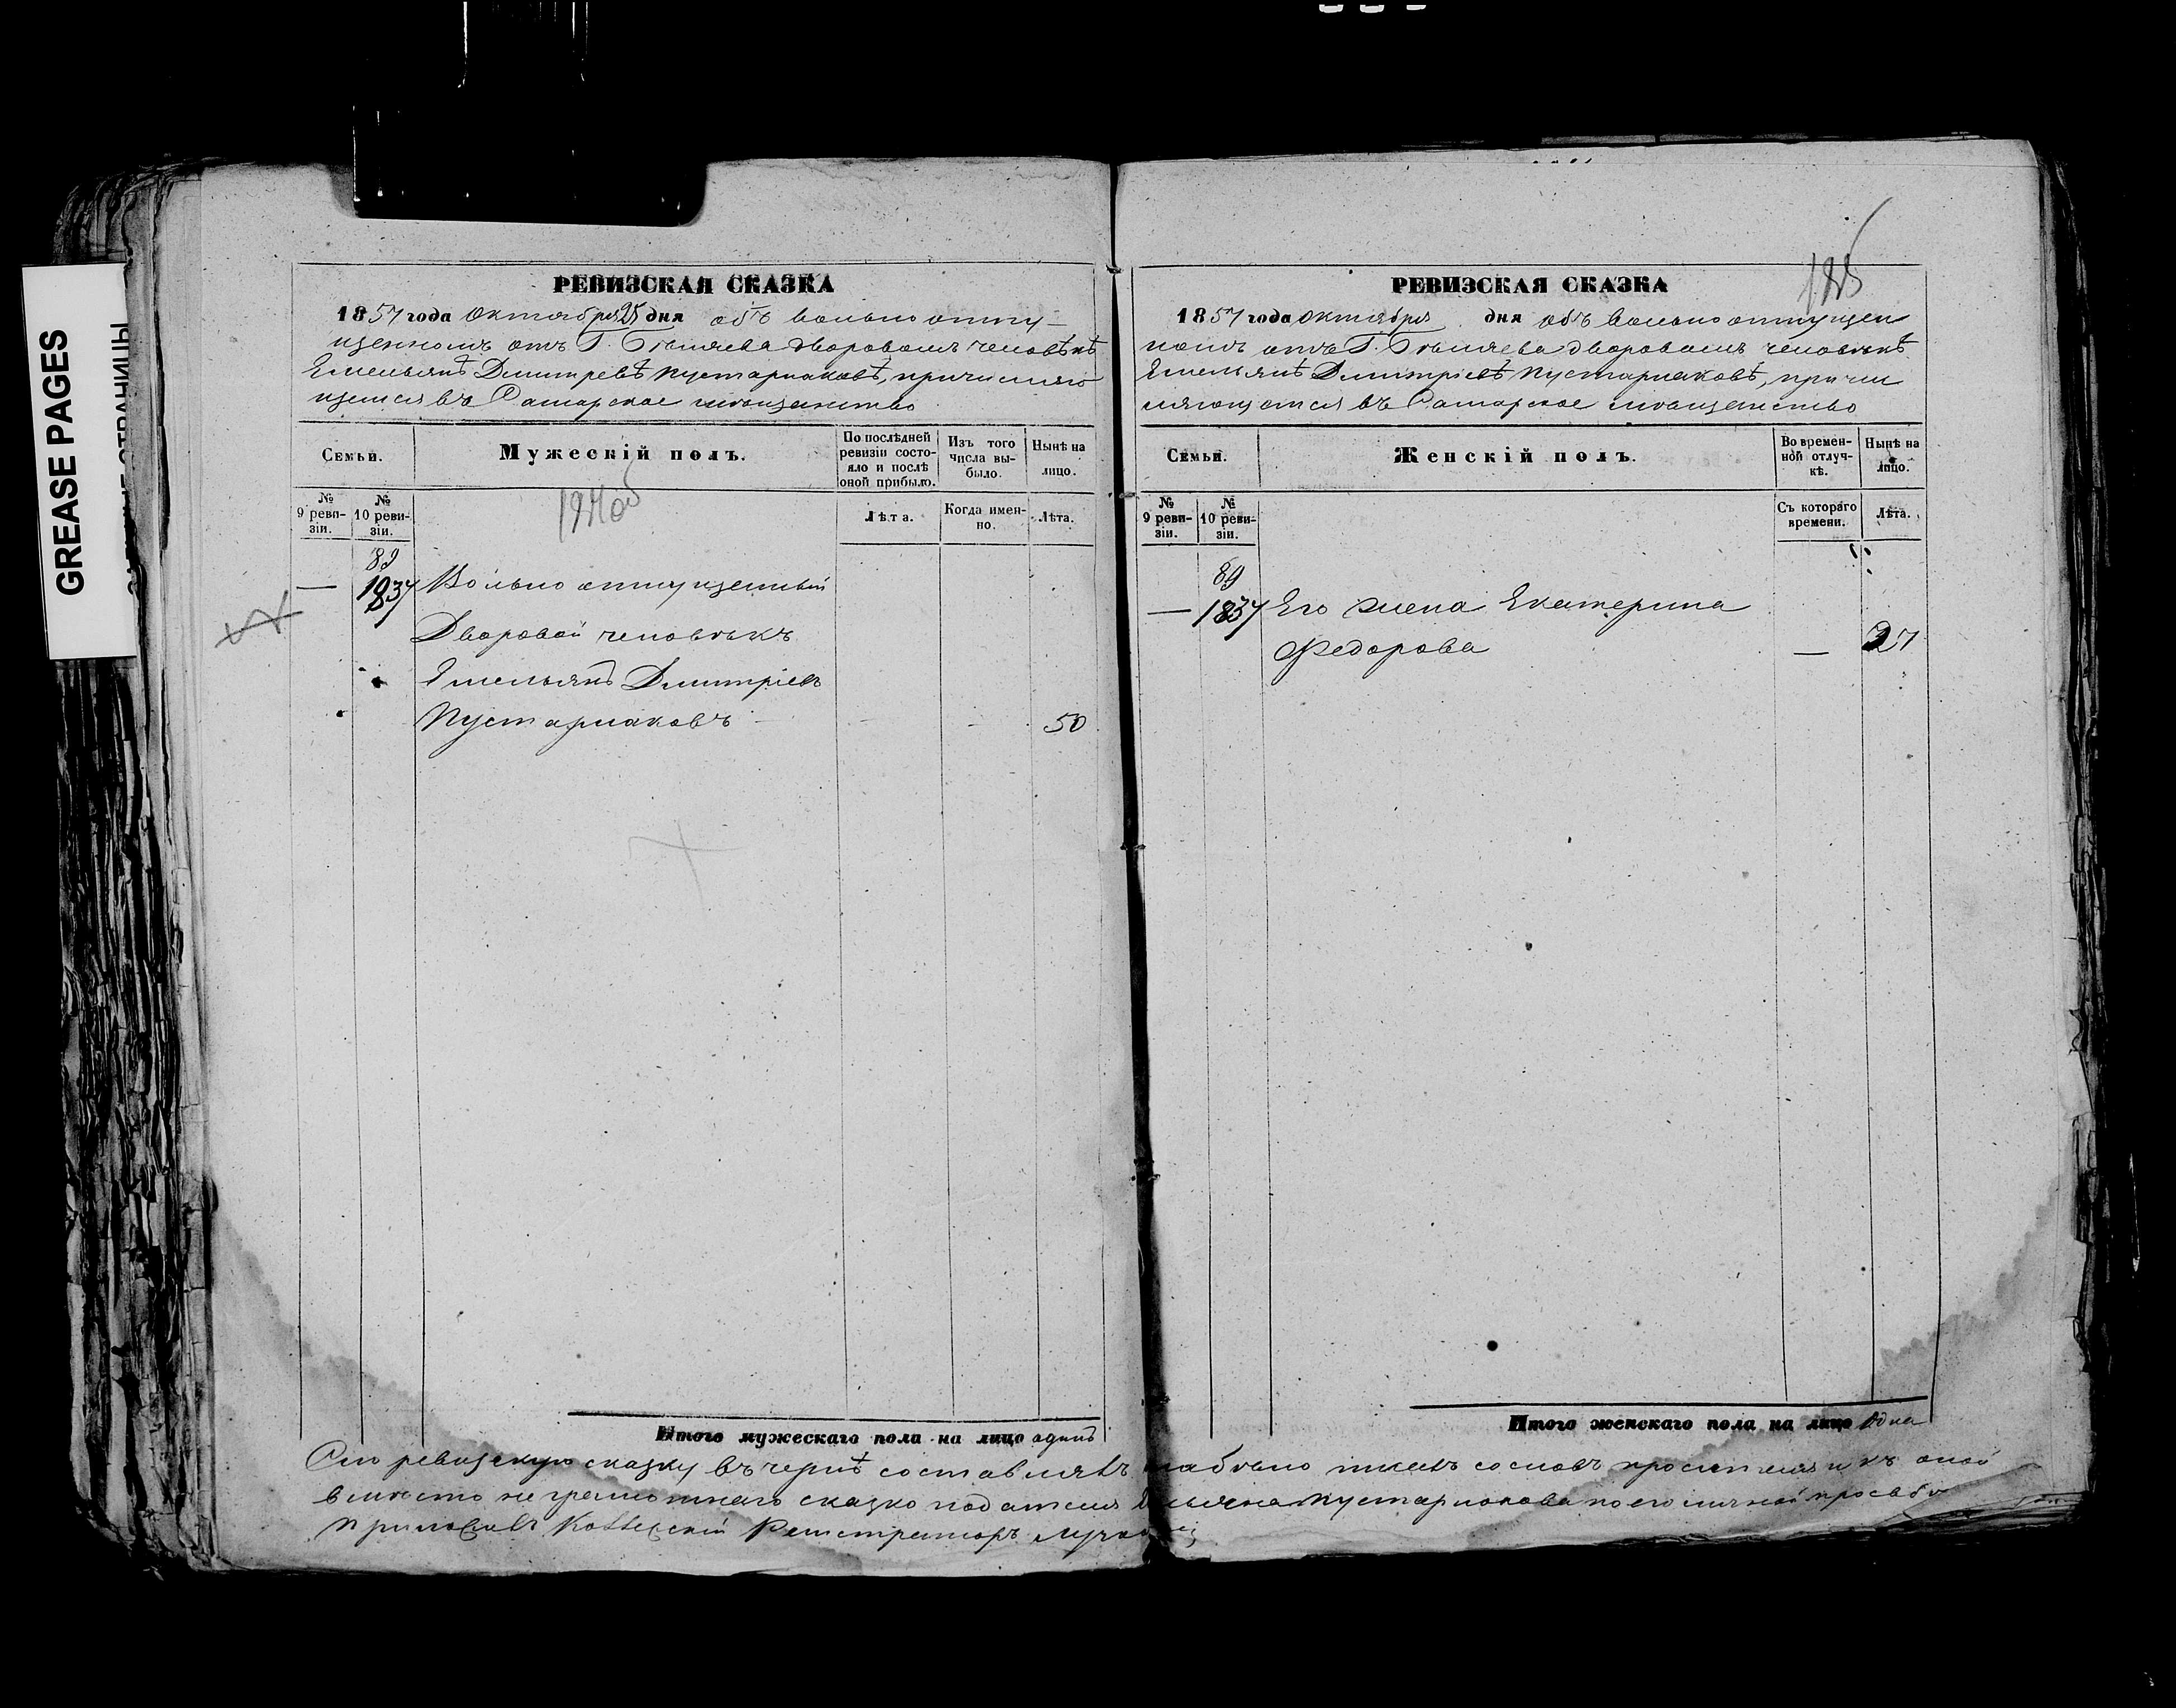 GREASE PAGES
РЕВИЗСКАЯ СКАЗКА
1857 года Октября 25 дня объ вольно отпу-
щенномъ отъ Г. Бѣляева дворовомъ человѣкѣ
Емельянѣ Дмитревѣ Пустарнаковѣ, причисляю
щемся въ Самарское мѣщанство
Семьи.
Мужескій полъ.
По послѣдней ревизіи состояло и послѣ оной прибыло.
Изъ того числа выбыло.
Нынѣ на лицо.
№ 9 ревизіи.
№ 10 ревизіи.
194 об
Лѣта.
Когда именно.
Лѣта.
89
— 1837 Вольно отпущенный
Дворовой человѣкъ
Емельянъ Дмитріевъ
Пустарнаковъ - - - 50
Итого мужескаго пола на лицо одинъ
РЕВИЗСКАЯ СКАЗКА
1857 года Октября дня объ вольно отпущен
номъ отъ Г. Бѣляева дворовомъ человѣкѣ
Емельянѣ Дмитріевѣ Пустарнаковѣ, причи
сляющемся въ Самарское мѣщанство
Семьи.
Женскій полъ.
Во временной отлучкѣ.
Нынѣ на лицо.
№ 9 ревизіи.
№ 10 ревизіи.
Съ котораго времени.
Лѣта.
89
— 1837 Его жена Екатерина
Федорова — 27
Итого женскаго пола на лицо одна
Сію ревизскую сказку въ чернѣ составлялъ набѣло писалъ со словъ просителя и къ оной
вмѣсто не грамотнаго сказко подателя Пустарнакова по его личной прозьбѣ
Коллежскій Регистраторъ